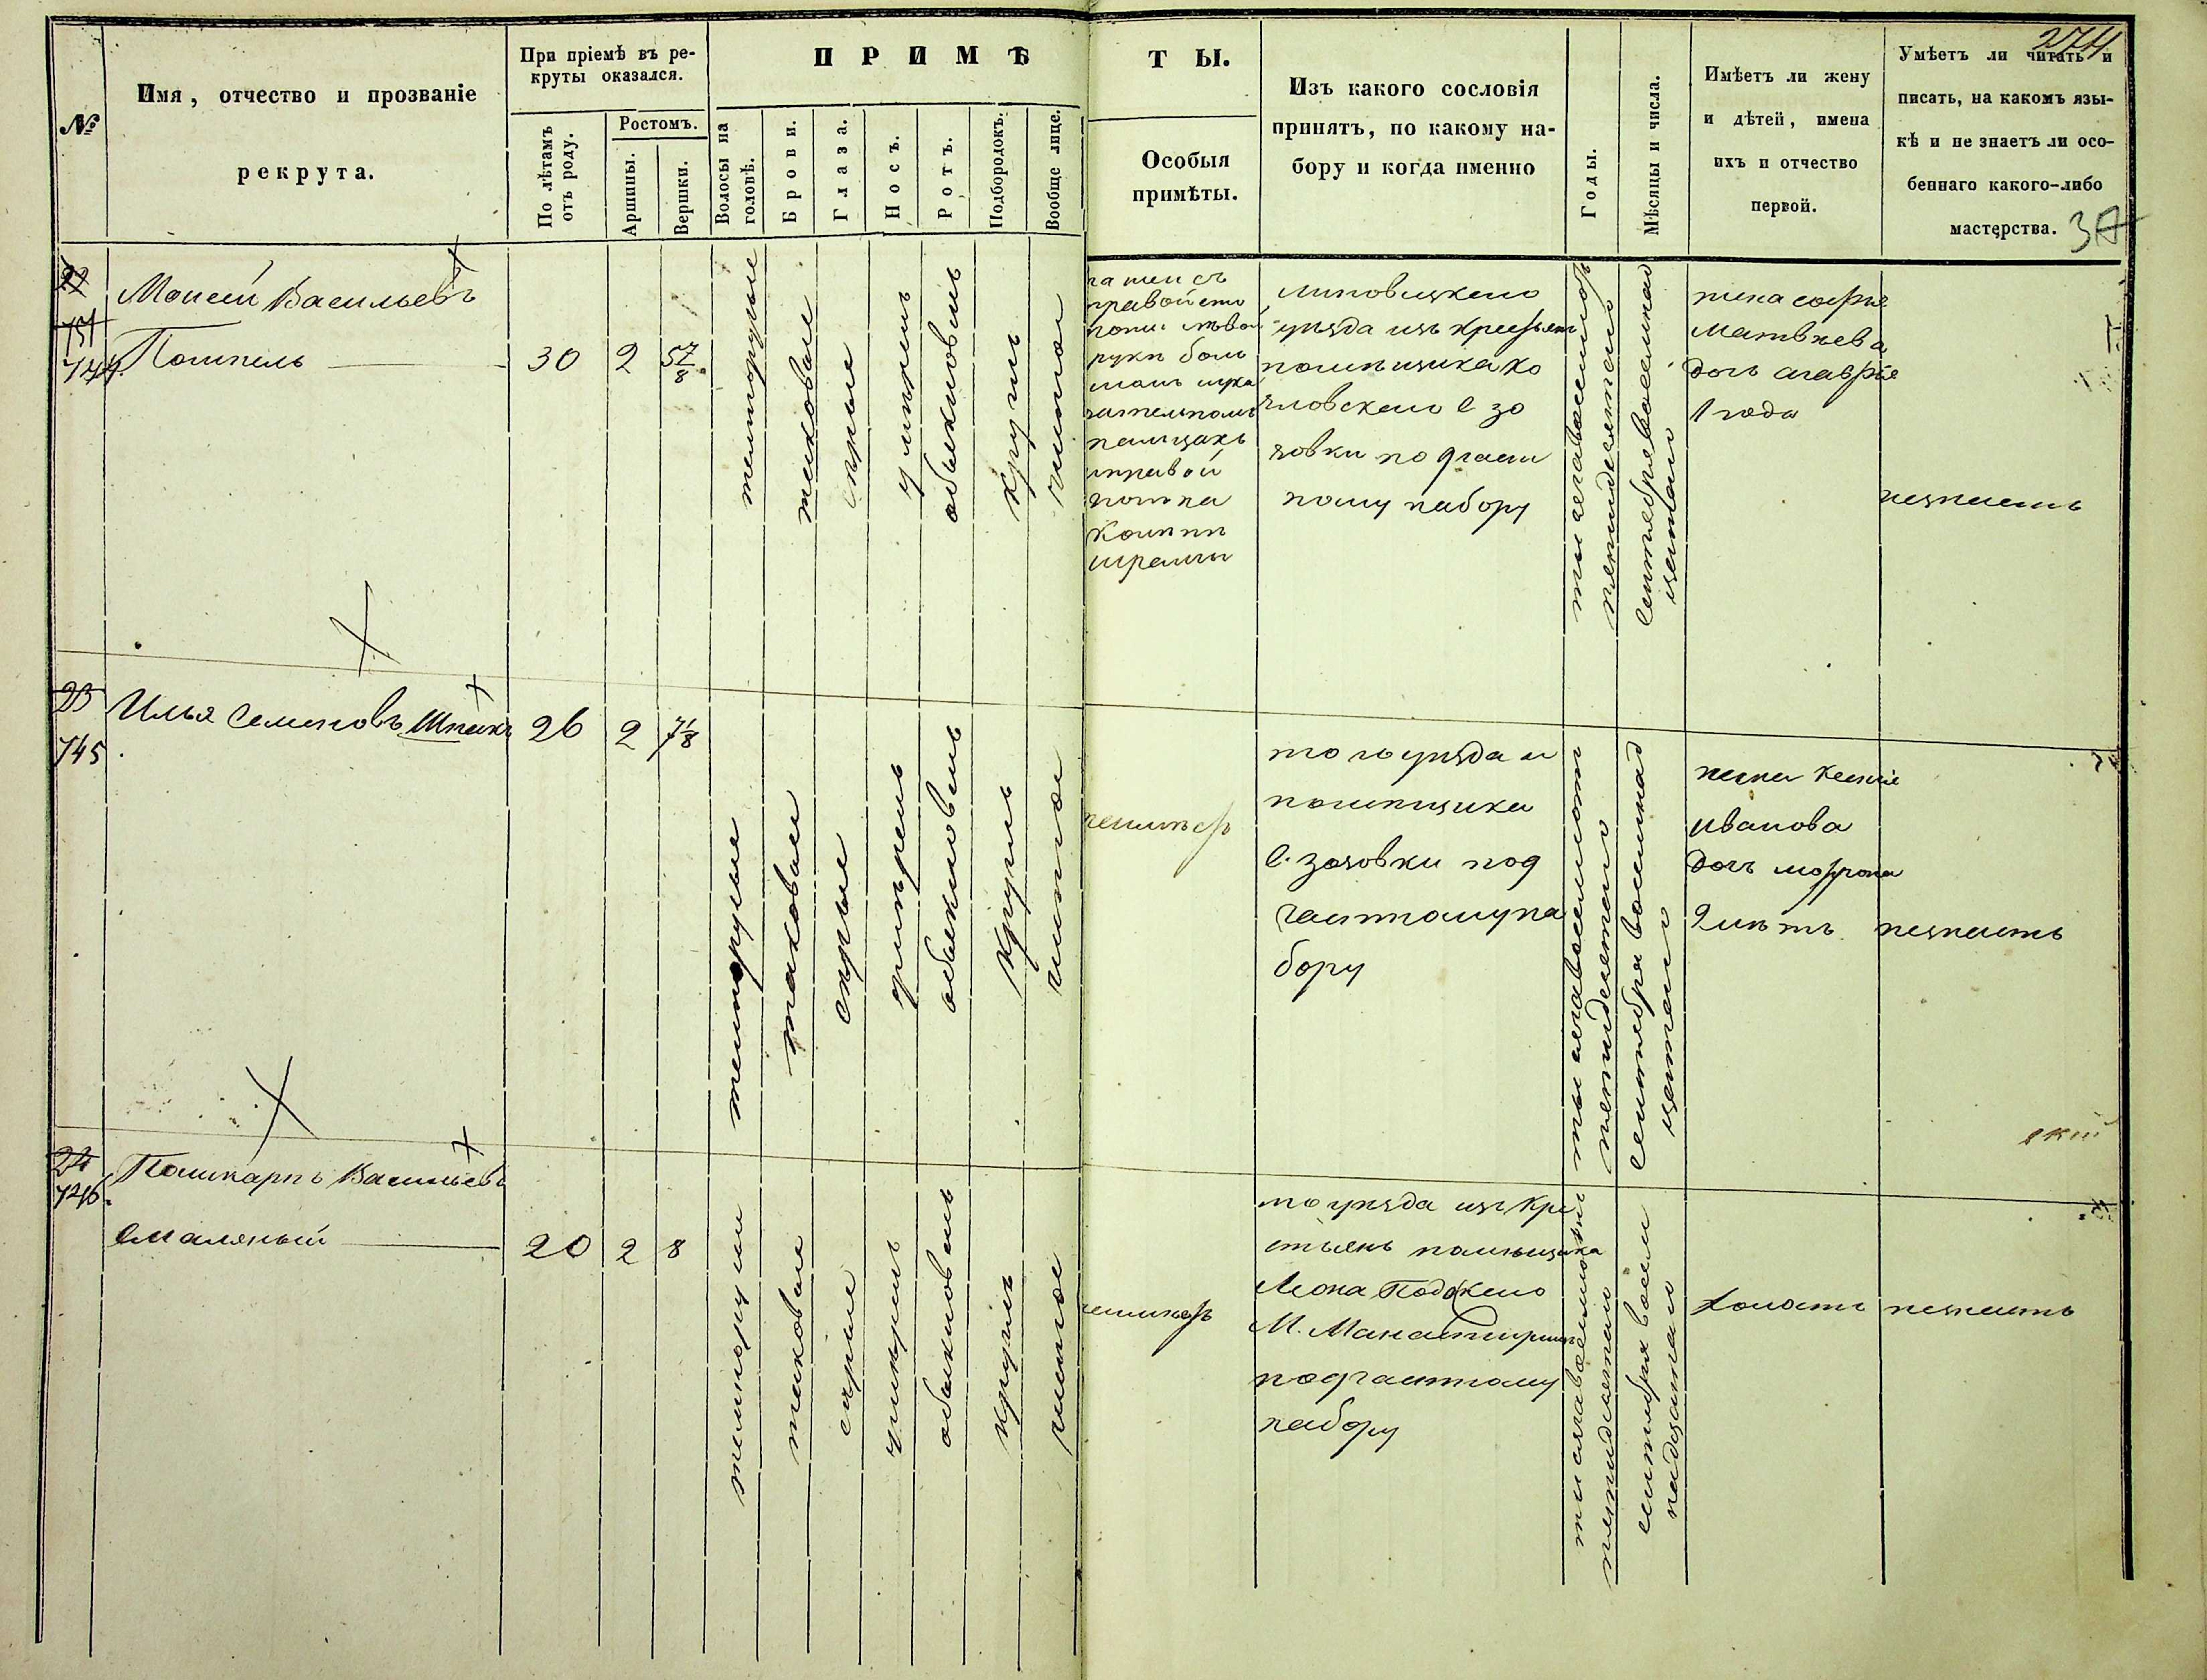 274
№
Имя, отчество и прозваніе
рекрута.
При пріемѣ въ ре-
круты оказался.
По лѣтамъ
отъ роду.
Ростомъ.
Аршины.
Вершки.
ПРИМѢ
ТЫ.
Волосы на
головѣ.
Брови.
Глаза.
Носъ.
Ротъ.
Подбородокъ.
Вообще лице.
Особыя
примѣты.
Изъ какого сословія
принятъ, по какому на-
бору и когда именно
Годы.
Мѣсяцы и числа.
Имѣетъ ли жену
и дѣтей, имена
ихъ и отчество
первой.
Умѣетъ ли читать и
писать, на какомъ язы-
кѣ и не знаетъ ли осо-
беннаго какого-либо
мастерства.
22
744
Моисей Васильевъ
30
2
5 7/8
темнорусые
таковые
сѣрые
умѣренъ
обыкновенъ
круглъ
чистое
правой
руки боль
правой
шрамы
Липовецкаго
уѣзда изъ крестьянъ
помѣщика
зовки по 9 части
ному набору
тысяча восемьсот
пятидесятаго
Сентября восемнад
цатаго
жена софія
Матвѣева
дочь агафія
1 года
незнаетъ
23
745
Илья Семеновъ Шпакъ
26
2
7 1/8
темнорусые
таковые
сѣрые
умѣренъ
обыкновенъ
круглъ
чистое
неимѣетъ
того уѣзда и
помѣщика
с. зозовки по 9
частному на
бору
тысяча восемьсотъ
пятидесятаго
Сентября восемнад
цатаго
жена ксенія
иванова
дочь
2 лѣтъ
незнаетъ
24
746
Поликарпъ Васильевъ
Смаляный
20
2
8
темнорусые
таковые
сѣрые
умѣренъ
обыкновенъ
круглъ
чистое
неимѣетъ
то уѣзда изъ кре
стьянъ помѣщика
М.
по 9 частному
набору
тысяча восемьсотъ
пятидесятаго
сентября восем
надцатаго
холостъ
незнаетъ